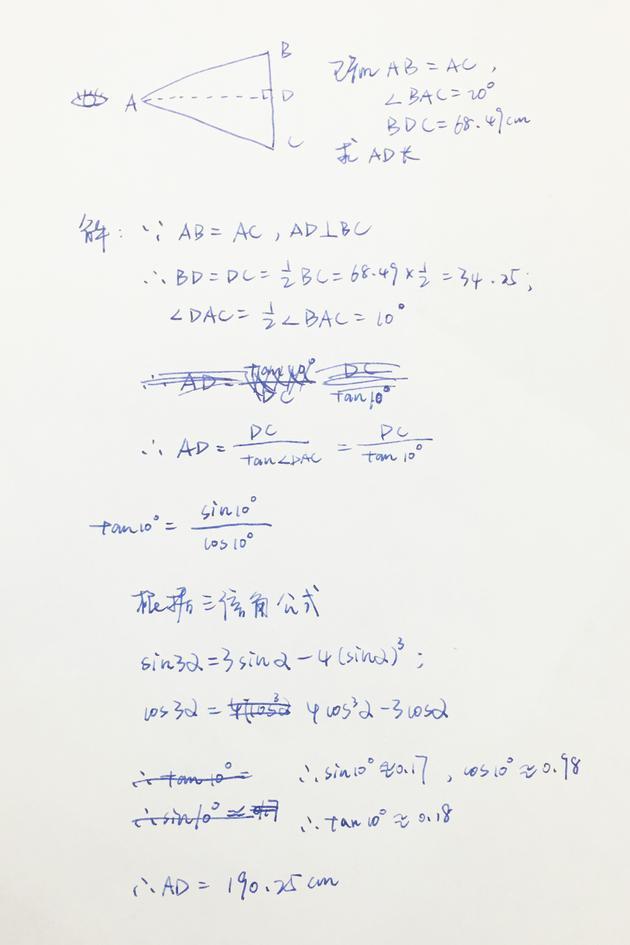 B
A
D
C
已知 AB = AC ,
∠BAC = 20°
BDC = 68.49cm
求 AD长
解: ∵ AB = AC , AD⊥BC
∴ BD = DC = 1/2 BC = 68.49 × 1/2 = 34.25 ;
∠DAC = 1/2 ∠BAC = 10°
∴ AD = tan10°/DC DC/tan10°
∴ AD = DC/tan∠DAC = DC/tan10°
tan10° = sin10°/cos10°
根据三倍角公式
sin3α = 3sinα - 4(sinα)³ ;
cos3α = 4cos³α - 3cosα
∴ tan10° = ∴ sin10° ≈ 0.17 , cos10° ≈ 0.98
∴ sin10° ≈ ∴ tan10° ≈ 0.18
∴ AD = 190.25 cm